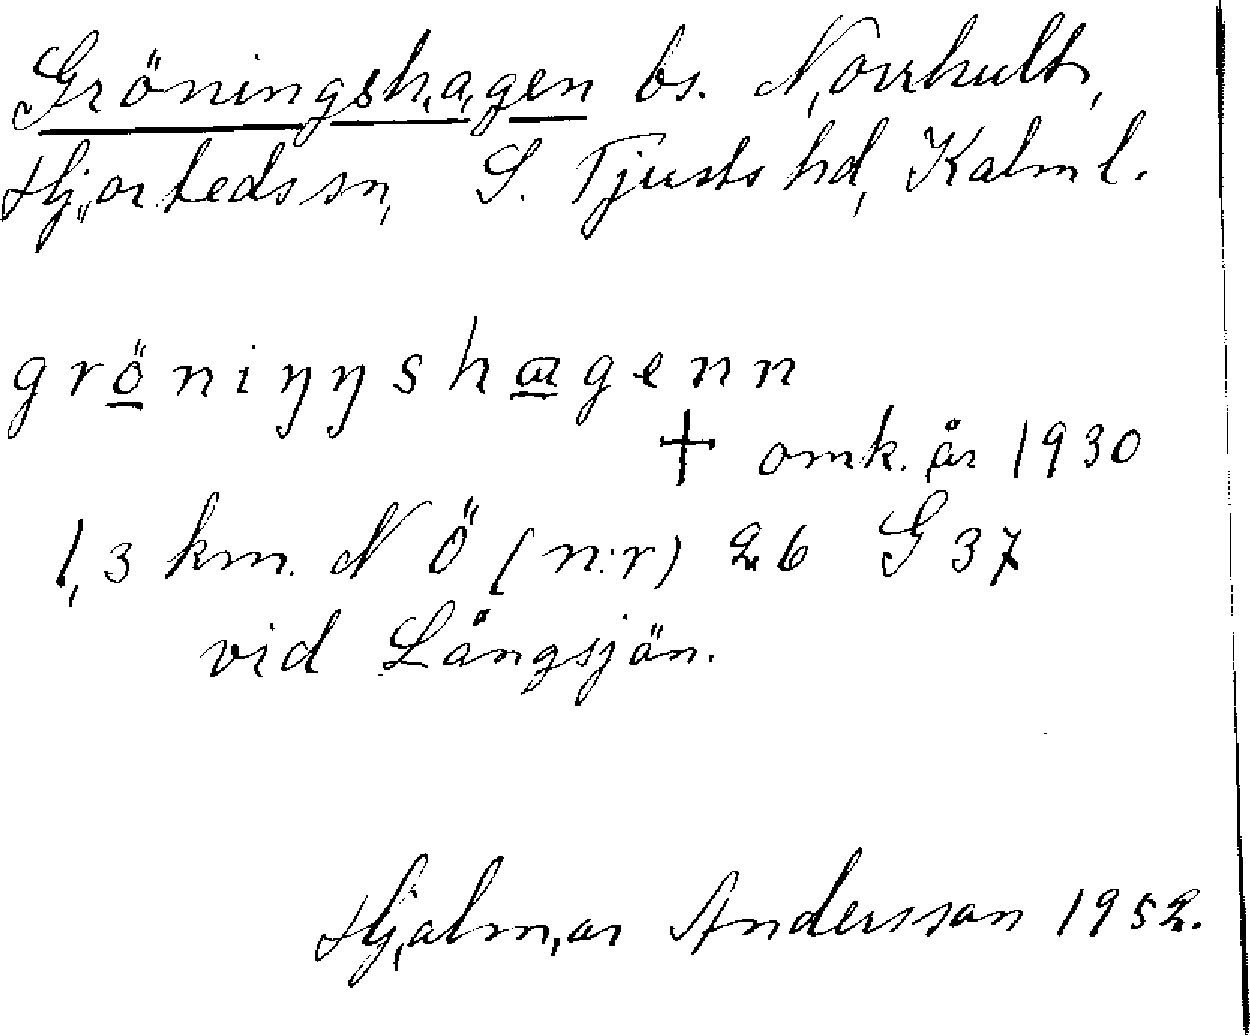 Gröningshagen bs. Norrhult,
Hjorteds sn, S. Tjusts hd, Kalm l.
gröniŋŋshagenn
+ omk. år 1930
1,3 km. NÖ (n:r) 26 G 37
vid Långsjön.
Hjalmar Andersson 1952.